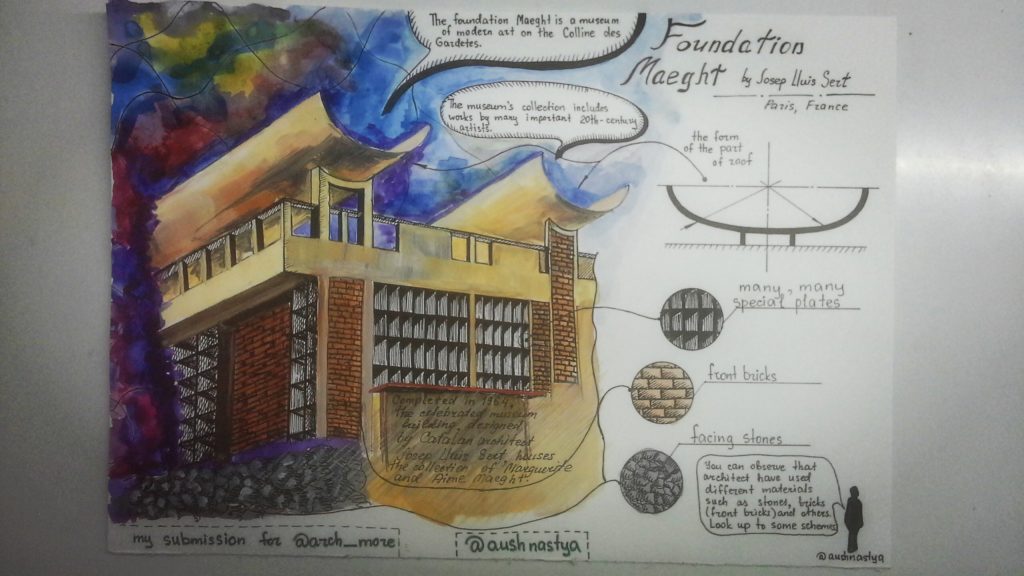 The foundation Maeght is a museum
of modern art on the Colline des
Gardetes.
Foundation
Maeght by Josep Lluis Sert
Paris, France
The museum's collection includes
works by many important 20th-century
artists.
the form
of the part
of roof
many, many
special plates
front bricks
facing stones
Completed in 1964,
the celebrated museum
building, designed
by Catalan architect
Josep Lluis Sert houses
the collection of "Marguerite
and Aime Maeght".
You can observe that
architect have used
different materials
such as stones, bricks
(front bricks) and others.
Look up to some schemes
@aushnastya
my submission for @arch_more
@aushnastya